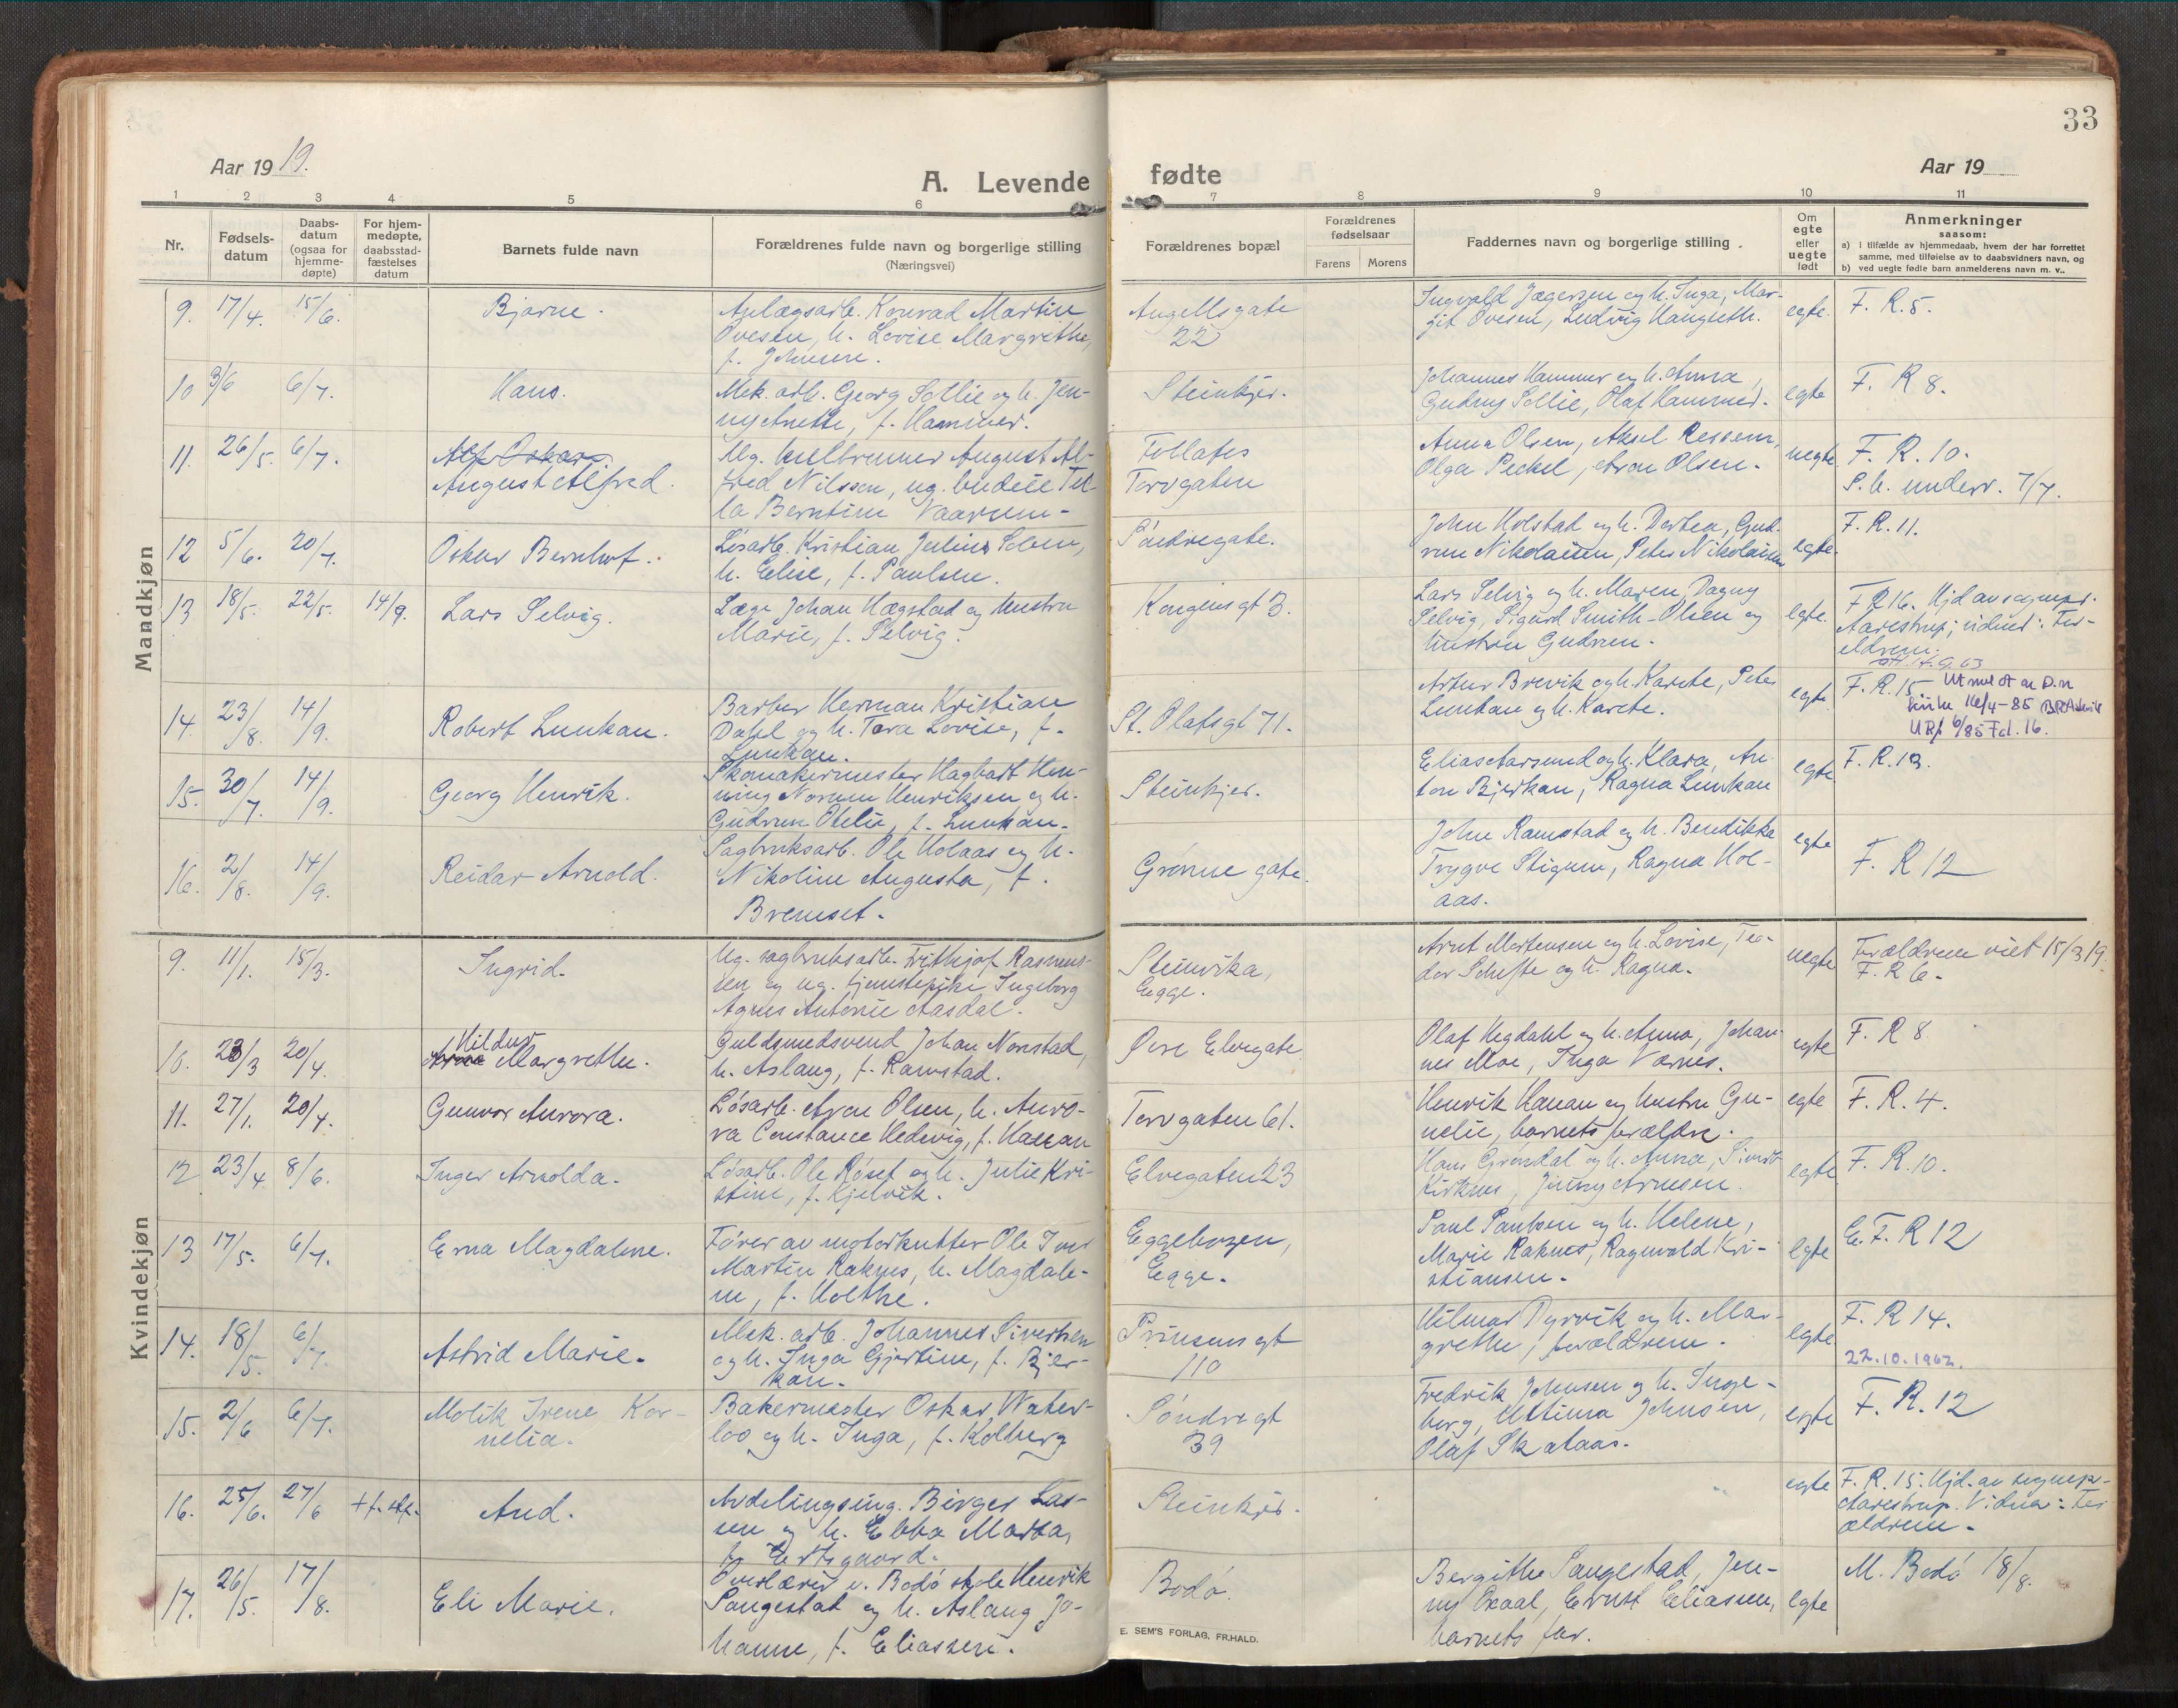 33
Aar 19 19.
A. Levende fødte
Aar 19
1 2 3 4 5 6 7 8 9 10 11
Nr.
Fødsels-
datum
Daabs-
datum
(ogsaa for
hjemme-
døpte)
For hjem-
medøpte,
daabsstad-
fæstelses
datum
Barnets fulde navn
Forældrenes fulde navn og borgerlige stilling
(Næringsvei)
Forældrenes bopæl
Forældrenes
fødselsaar
Farens Morens
Faddernes navn og borgerlige stilling
Om
egte
eller
uegte
født
Anmerkninger
saasom:
a) i tilfælde av hjemmedaab, hvem der har forrettet
samme, med tilføielse av to daabsvidners navn, og
b) ved uegte fødte barn anmelderens navn m. v..
Mandkjøn
9. 17/4. 15/6. Bjarne.
Anlægsarb. Konrad Martin
Ovesen, h. Lovise Margrethe,
f. Johnsen.
Angellsgate
22
Ingvald Jægersen og h. Inga, Mar-
git Ovesen, Ludvig Haugseth.
egte.
F. R. 5.
10 3/6 6/7. Hans.
Mek. arb. Georg Sellie og h. Jen-
ny Anette, f. Hammer.
Steinkjer.
Johannes Hammer og h. Anna,
Gudny Sellie, Olaf Hammer.
egte
F. R 8.
11. 26/5. 6/7. Alf Oskar.
August Alfred.
Ug. August Al-
fred Nilssen, ug. budeie Tel-
la Berntine Vaarum-
Follafos
Torvgaten
Anna Olsen, Aksel Ressem,
Olga Peckel, Aron Olsen.
uegte
F. R. 10.
S. b. underr. 7/7.
12 5/6. 20/7. Oskar Bernhof.
Løsarb. Kristian Julius Solem,
h. Elise, f. Paulsen.
Søndregate.
John Holstad og h. Dortea, Gud-
run Nikolaisen, Peter Nikolaisen
egte.
F. R. 11.
13 18/5. 22/5. 14/9. Lars Selvig.
Læge Johan Hægstad og hustru
Marie, f. Selvig.
Kongensgt 3.
Lars Selvig og h. Maren, Dagny
Selvig, Sigurd Smith-Olsen og
hustru Gudrun.
egte.
F R 16. Hjd av sognepr.
Aarestrup; vidner: For-
eldrene.
14. 23/8. 14/9. Robert Lunkan.
Barber Herman Kristian
Dahl og h. Tora Lovise, f.
Lunkan.
St. Olafsgt 71.
Artur Brevik og h. Karete, Peter
Lunkan og h. Karete.
egte.
F. R. 15. Utmeldt av D.n
kirke 16/4-85
URf 6/85 Fd. 16.
15. 30/7. 14/9. Georg Henrik.
Skomakermester Hagbart Hen-
ning Norum Henriksen og h.
Gudrun Otelie, f. Lunkan.
Steinkjer.
Elias Aarsund og h. Klara, An-
ton Bjerkan, Ragna Lunkan
egte
F. R. 13.
16. 2/8. 14/9. Reidar Arnold.
Sagbruksarb. Ole Holaas og h.
Nikoline Augusta, f.
Bremset.
Grønne gate.
John Ramstad og h. Bendikka
Trygve Stigum, Ragna Hol-
aas.
egte
F. R 12
Kvindekjøn
9. 11/1. 15/3. Ingrid.
Ug. sagbruksarb. Frithjof Rasmus-
sen og ug. tjenstepike Ingeborg
Agnes Antonie Aasdal.
Steinvika,
Egge.
Arnt Mortensen og h. Lovise, Teo-
dor Schefte og h. Ragna.
uegte
Forældrene viet 15/3 19.
F. R 6.
10. 23/3 20/4. Hildur
Anna Margrethe.
Guldsmedsvend Johan Nonstad,
h. Aslaug, f. Ramstad.
Øvre Elvegate.
Olaf Hegdahl og h. Anna, Johan-
nes Moe, Inga Værnes.
egte
F. R 8
11. 27/1. 20/4. Gunvor Aurora.
Løsarb. Aron Olsen, h. Auro-
ra Constance Hedevig, f. Hanan
Torvgaten 61.
Henrik Hanan og hustru Gu-
nelie, barnets forældre.
egte
F. R. 4.
12 23/4. 8/6. Inger Arnolda.
Løsarb. Ole Røset og h. Julie Kri-
stine, f. Kjelvik.
Elvegaten 23
Hans Grøndal og h. Anna, Sivert
Kirknes, Jenny Arnesen.
egte
F. R. 10.
13 17/5. 6/7. Erna Magdalene.
Fører av motorkutter Ole Iver
Martin Raknes, h. Magdale-
ne, f. Holthe.
Eggebogen,
Egge.
Paul Paulsen og h. Helene,
Marie Raknes, Ragnvald Kri-
stiansen.
egte
E. F. R 12
14. 18/5. 6/7. Astrid Marie.
Mek. arb. Johannes Sivertsen
og h. Inga Gjertine, f. Bjer-
kan.
Prinsensgt
110
Hilmar Dyrvik og h. Mar-
grethe, forældrene.
egte
F. R 14.
22.10.1962.
15. 2/6 6/7. Molik Irene Kor-
nelia.
Bakermester Oskar Water-
loo og h. Inga, f. Kolberg
Søndregt
39
Fredrik Johnsen og h. Inge-
borg, Uttima Johnsen,
Olaf Skataas.
egte
F. R. 12
16. 25/6. 27/6 Aud.
Avdelingsing. Birger Las-
sen og h. Ebba Marta,
Steinkjer.
egte
F. R. 15. Hjd. av sognepr.
Aarestrup. Vidner: For-
ældrene.
17. 26/5. 17/8. Eli Marie.
Overlærer v. Bodø skole Henrik
Saugestad og h. Aslaug Jo-
hanne, f. Eliassen.
Bodø.
Bergithe Saugestad, Jen-
ny Oxaal, Ernst Eliassen,
barnets far.
egte
M. Bodø 18/8.
E. SEM'S FORLAG, FR.HALD.